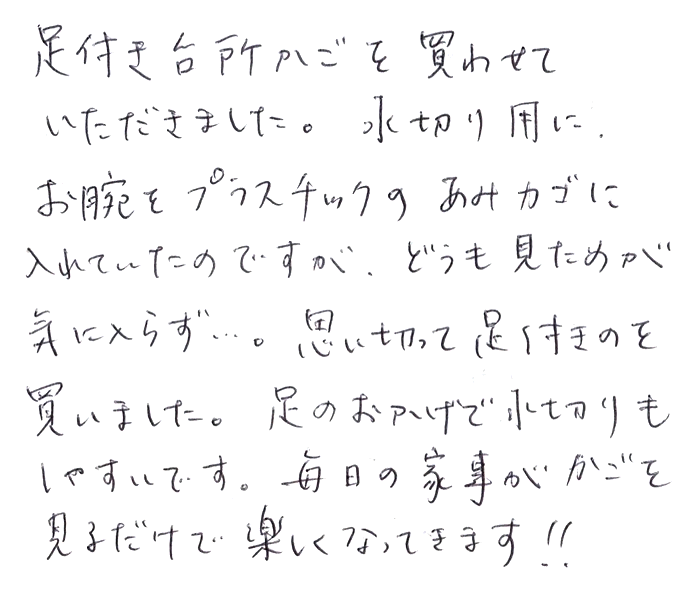 足付き台所かごを買わせて
いただきました。水切り用に、
お腕をプラスチックのあみカゴに
入れていたのですが、どうも見ためが
気に入らず…。思い切って足付きのを
買いました。足のおかげで水切りも
しやすいです。毎日の家事がかごを
見るだけで楽しくなってきます!!